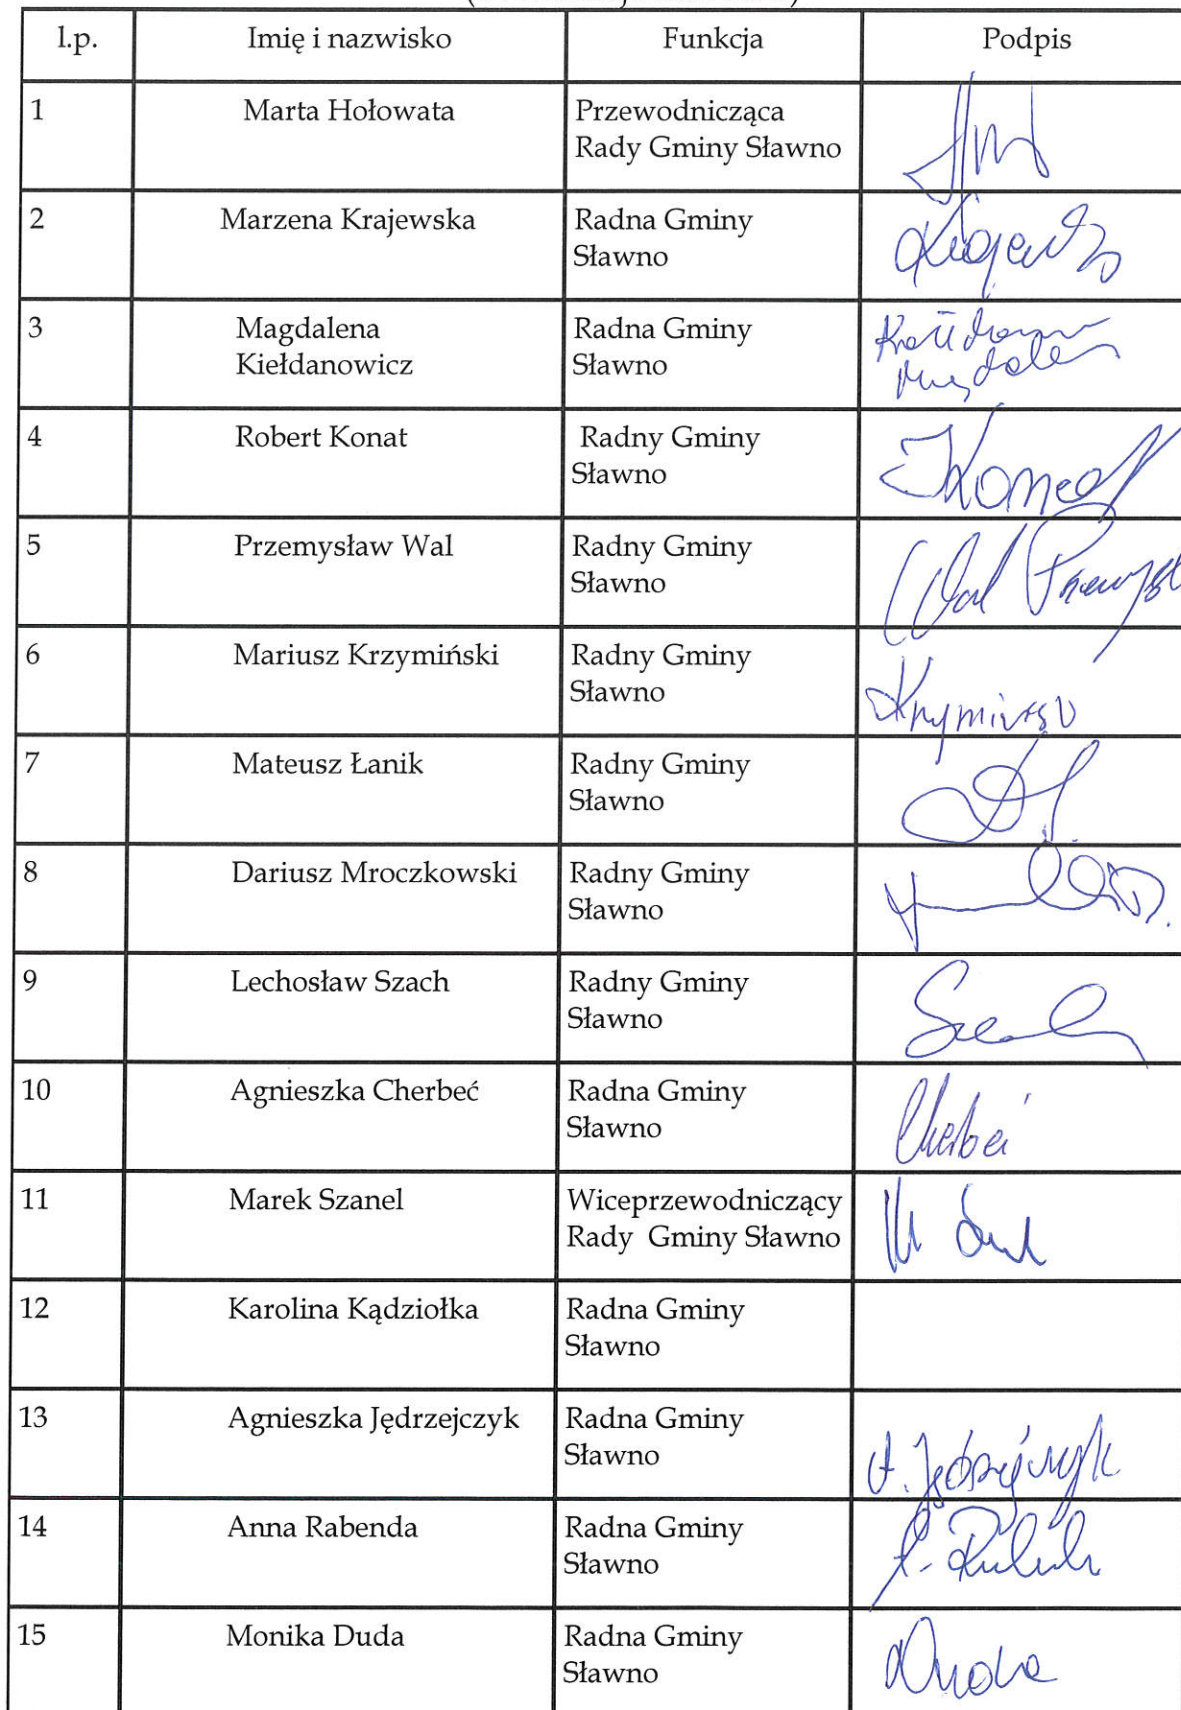 l.p. Imię i nazwisko Funkcja Podpis
1 Marta Hołowata Przewodnicząca
Rady Gminy Sławno
2 Marzena Krajewska Radna Gminy
Sławno
3 Magdalena Radna Gminy
Kiełdanowicz Sławno
4 Robert Konat Radny Gminy
Sławno
5 Przemysław Wal Radny Gminy
Sławno
6 Mariusz Krzymiński Radny Gminy
Sławno
7 Mateusz Łanik Radny Gminy
Sławno
8 Dariusz Mroczkowski Radny Gminy
Sławno
9 Lechosław Szach Radny Gminy
Sławno
10 Agnieszka Cherbeć Radna Gminy
Sławno Cherbeć
11 Marek Szanel Wiceprzewodniczący
Rady Gminy Sławno
12 Karolina Kądziołka Radna Gminy
Sławno
13 Agnieszka Jędrzejczyk Radna Gminy
Sławno A. Jędrzejczyk
14 Anna Rabenda Radna Gminy
Sławno
15 Monika Duda Radna Gminy
Sławno Duda